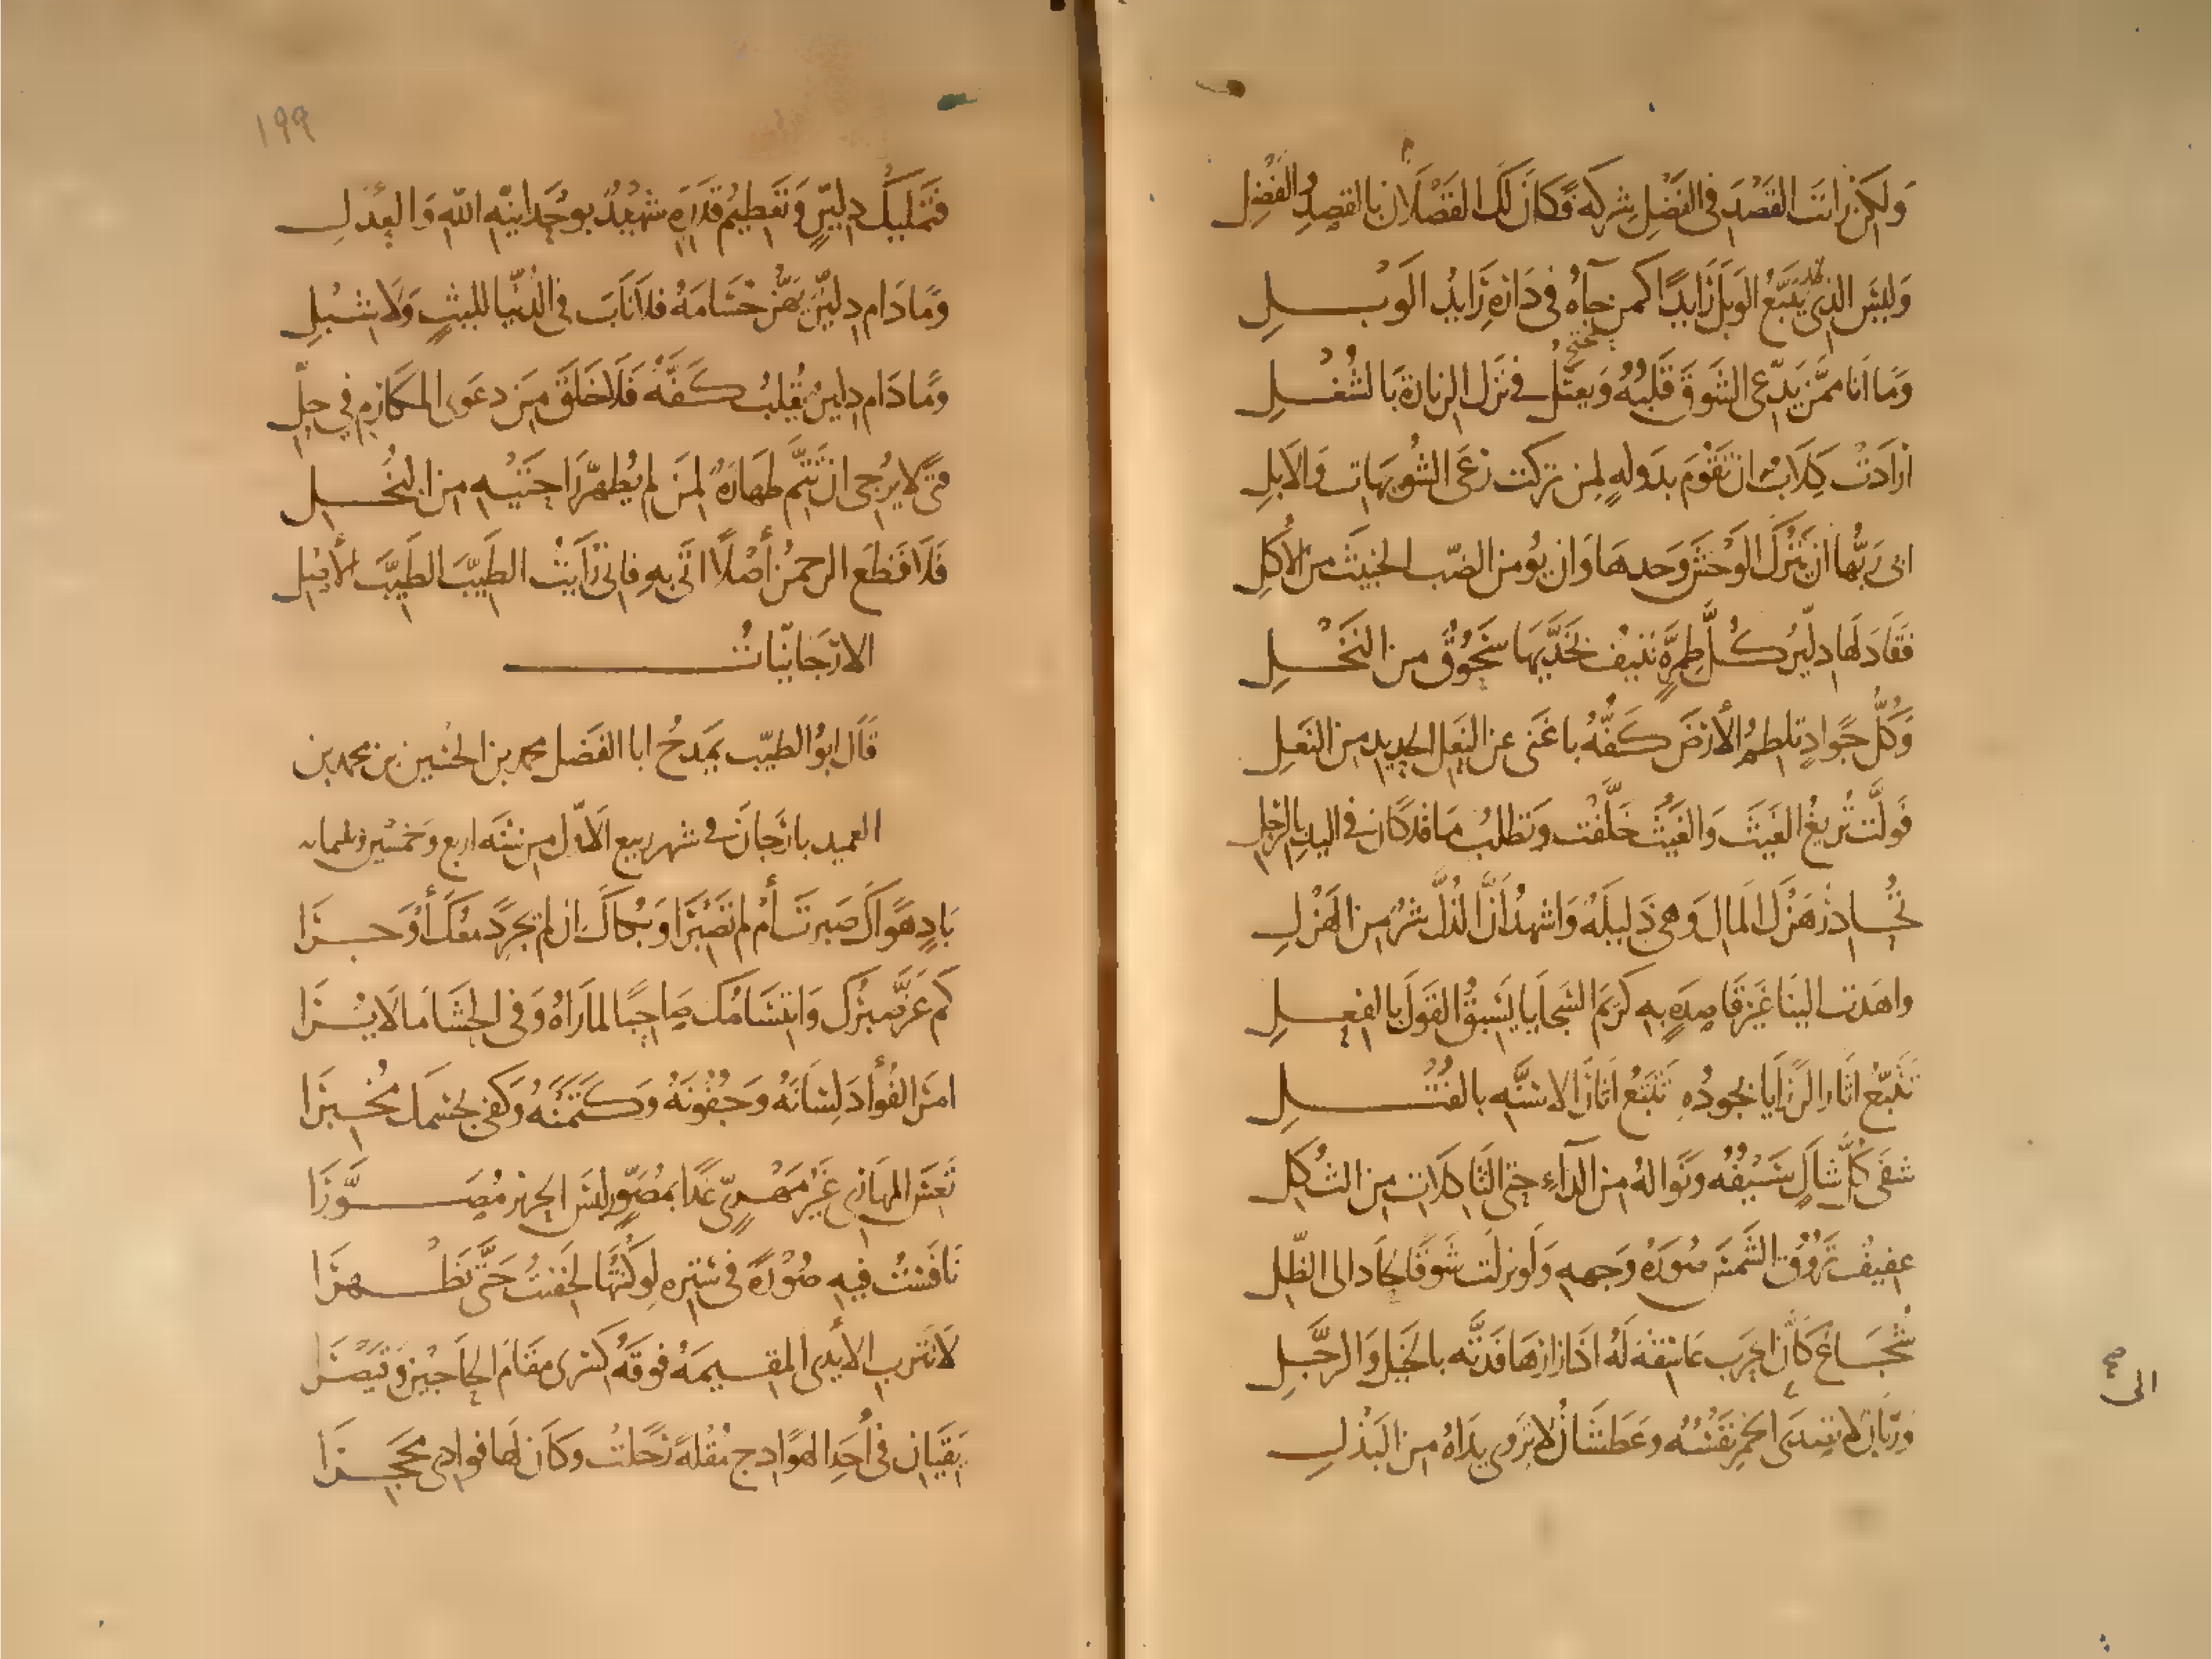 وَلكِنْ رَأيتَ القَصْدَ في الفَضْلِ شِركَةً فَكَانَ لَكَ الفَضْلانِ بالقَصْدِ والفَضْلِ
وَليسَ الذي يَتَّبَّعُ الوَبلَ رَائِدًا كمن جآءَهُ في دَارِهِ رَائِدُ الوَبْلِ
وَمَا أنا ممَّن يَدَّعى الشوقَ قَلبُهُ وَيَعتَلُّ في تَرك الزيارةِ بالشُغْلِ
أرَادَتْ كِلَابٌ ان تَقُومَ بدَولةٍ لمن تركت رَعىَ الشُوَيهات وَالابلِ
ابى رَبُّها ان يَتْرُكَ الوَحشَ وَحدهَا وَان يُؤمنَ الضّب الخبيثَ من الأكْلِ
فَقَادَ لَهَا دِلّيرُ كُلَّ طِمِرَّةٍ تُنِيفُ بخَدَّيْهَا سَحُوقٌ من النَخْلِ
وَكُلَّ جَوادٍ تلطِمُ الأرْضَ كَفُّهُ باغنَى عن النَعل الحديدِ من النَعلِ
فَولَّت تُريغُ الغَيثَ وَالغَيْثَ خَلَّفَت وتطلبُ ما قد كان في اليدِ بالرِّجلِ
تُحاذرُ هَزْلَ المَالِ وَهي ذَليلَةٌ وَاشهدُ انَّ الذُلَّ شرٌّ من الهَزلِ
واهدَت الينا غيرَ قاصِدَةٍ به كريمَ السَّجَايا يَسْبِقُ القَولَ بالفِعلِ
تَتَبَّعُ آثارَ الرَّزَايَا بجُودِهِ تَتَبُّعَ آثارِ الاسنَّةِ بالفُتُلِ
شفَى كُلَّ شاكٍ سَيْفُهُ ونَوالهُ من الدآءِ حتى الثاكلات من الثُكلِ
عفيفٌ تَرُوقُ الشَّمسَ صُورَةُ وَجههِ وَلَو نزلَت شَوقًا لحَادَ الى الظِّلِ
شُجَاعٌ كأنَّ الحربَ عَاشِقةٌ لَهُ اذا زارَهَا فَدَّتهُ بالخَيلِ وَالرَّجْلِ
وَرَيّانُ لا تَصدَى الى الخمرِ نَفْسُهُ وعَطشَانُ لا تَروى يدَاهُ من البَذلِ
صح
الى
١٩٩
فتَمليكُ دِلّيرٍ وَتَعظيمُ قَدرِهِ شهِيدٌ بوَحْدانيَّةِ اللهِ وَالعدلِ
وَمَا دَامَ دِلّيرٌ يَهُزُّ حُسَامَهُ فلا نَابَ في الدُنْيا لليثٍ وَلا شبلِ
وَمَا دَامَ دِلّيرٌ يُقلِّبُ كَفَّهُ فَلَا خَلقَ مِن دعوَى المكَارِمِ في حِلِّ
فتًى لا يُرَجّى ان تَتِمَّ طهَارَةٌ لمَن لم يُطهِّر رَاحَتَيْهِ من البُخلِ
فَلا قَطعَ الرحمنُ أصْلًا اتَى بهِ فانى رَأيتُ الطَيِّبَ الطَيِّبَ الأصْلِ
الارّجَانيَّاتُ
قَالَ ابُو الطيّب يَمدَحُ ابا الفَضل محمد بن الحُسَين بن محمد بن
العميد بارّجانَ في شهر ربيع الأوّل من سَنَة اربع وَخَمسْين وثلثمائه
بَادٍ هَوَاكَ صَبرتَ أمْ لم تَصْبِرَا وَبُكاكَ ان لم يَجرِ دَمعُكَ أوْ جَرَا
كم غَرَّ صَبرُكَ وَابتسَامُكَ صَاحِبًا لما رَاهُ وَفى الحشَا مَا لا يُرَا
امرَ الفُؤَادُ لِسَانَهُ وَجُفُونَهُ وَكَتَمْنَهُ وَكفى بجسمك مُخبِرَا
تَعِسَ المهَارِى غَيرَ مَهْرِىٍّ غَدَا بمُصَوَّرٍ لبسَ الحريرَ مُصَوَّرَا
نَافَسْتُ فيهِ صُوْرَةً في سِترِهِ لو كُنْتُهَا لخَفِيتُ حَتَّى تَظْهَرَا
لا تَتْرب الأيدى المقيمَةُ فَوقَهُ كسرى مقامَ الحَاجِبَينِ وَقيصَرَا
يقيَانِ في أحَدِ الهوَادِج مُقْلَةً رَحَلتْ وَكانَ لَها فوادى مَحجَرَا